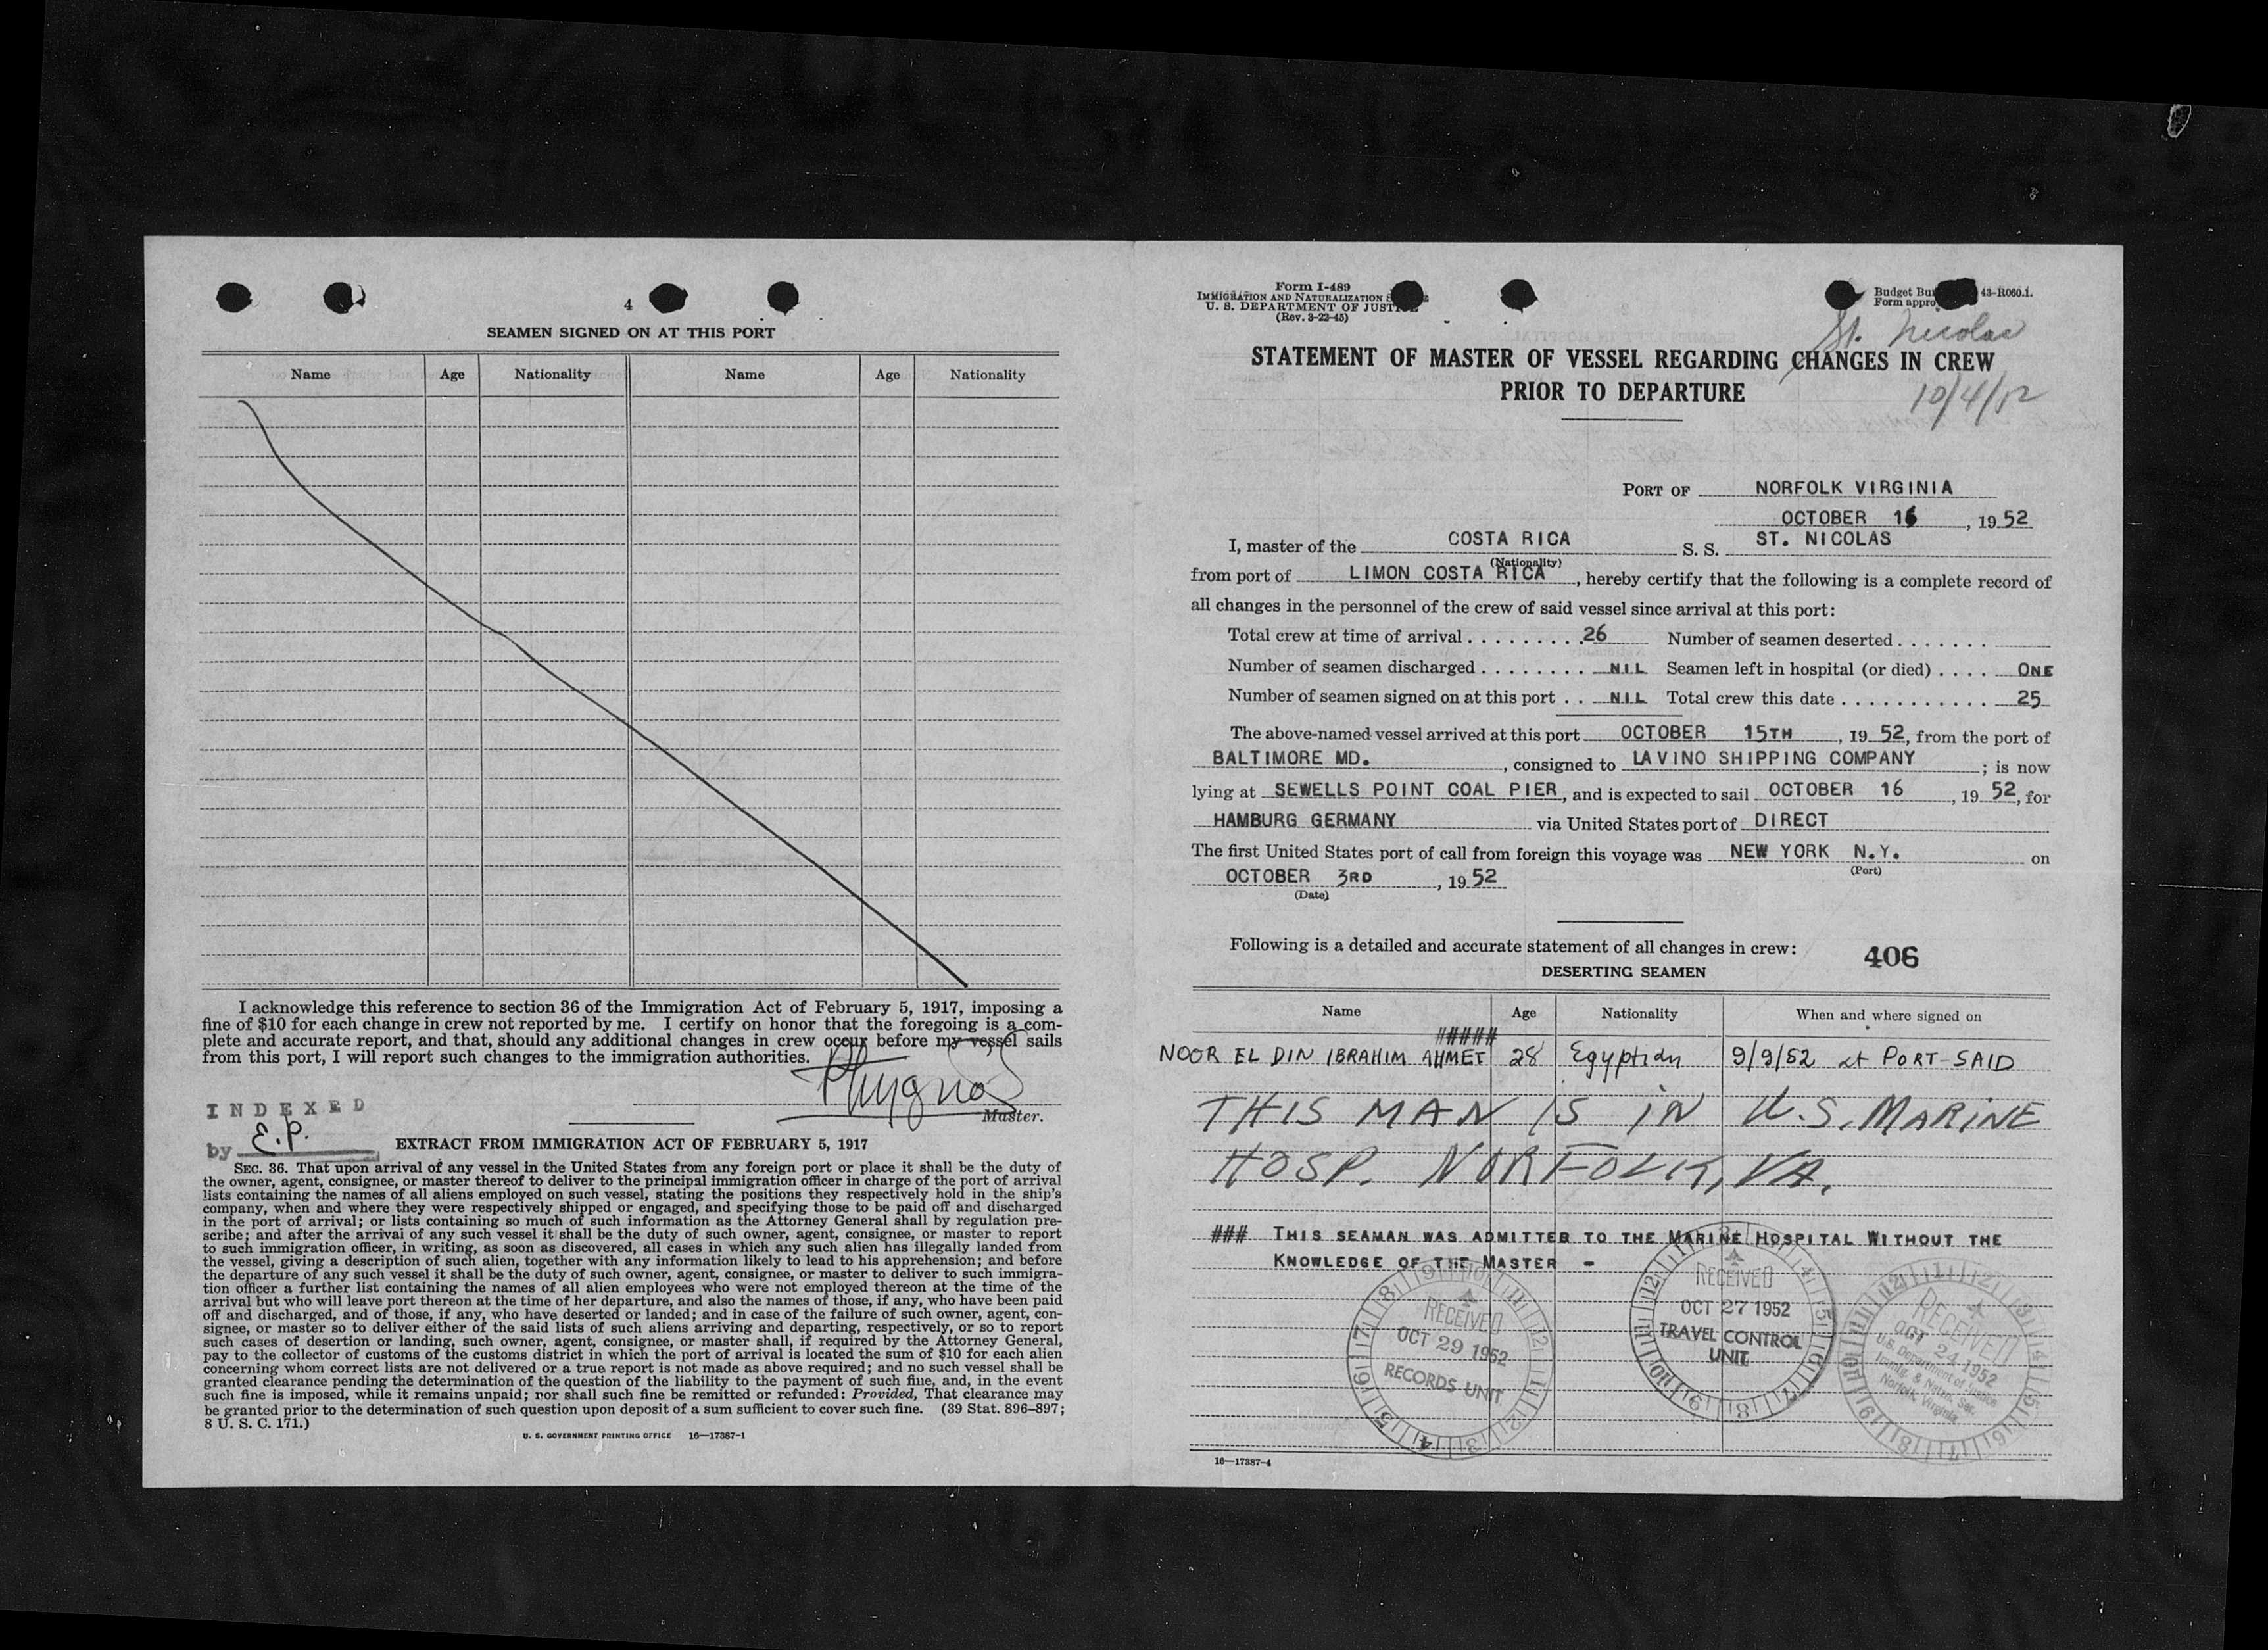 4
SEAMEN SIGNED ON AT THIS PORT
Name Age Nationality Name Age Nationality
I acknowledge this reference to section 36 of the Immigration Act of February 5, 1917, imposing a
fine of $10 for each change in crew not reported by me. I certify on honor that the foregoing is a com-
plete and accurate report, and that, should any additional changes in crew occur before my vessel sails
from this port, I will report such changes to the immigration authorities.
Master.
INDEXED
by E.P.
EXTRACT FROM IMMIGRATION ACT OF FEBRUARY 5, 1917
SEC. 36. That upon arrival of any vessel in the United States from any foreign port or place it shall be the duty of
the owner, agent, consignee, or master thereof to deliver to the principal immigration officer in charge of the port of arrival
lists containing the names of all aliens employed on such vessel, stating the positions they respectively hold in the ship's
company, when and where they were respectively shipped or engaged, and specifying those to be paid off and discharged
in the port of arrival; or lists containing so much of such information as the Attorney General shall by regulation pre-
scribe; and after the arrival of any such vessel it shall be the duty of such owner, agent, consignee, or master to report
to such immigration officer, in writing, as soon as discovered, all cases in which any such alien has illegally landed from
the vessel, giving a description of such alien, together with any information likely to lead to his apprehension; and before
the departure of any such vessel it shall be the duty of such owner, agent, consignee, or master to deliver to such immigra-
tion officer a further list containing the names of all alien employees who were not employed thereon at the time of the
arrival but who will leave port thereon at the time of her departure, and also the names of those, if any, who have been paid
off and discharged, and of those, if any, who have deserted or landed; and in case of the failure of such owner, agent, con-
signee, or master so to deliver either of the said lists of such aliens arriving and departing, respectively, or so to report
such cases of desertion or landing, such owner, agent, consignee, or master shall, if required by the Attorney General,
pay to the collector of customs of the customs district in which the port of arrival is located the sum of $10 for each alien
concerning whom correct lists are not delivered or a true report is not made as above required; and no such vessel shall be
granted clearance pending the determination of the question of the liability to the payment of such fine, and, in the event
such fine is imposed, while it remains unpaid; nor shall such fine be remitted or refunded: Provided, That clearance may
be granted prior to the determination of such question upon deposit of a sum sufficient to cover such fine. (39 Stat. 896–897;
8 U. S. C. 171.)
U. S. GOVERNMENT PRINTING OFFICE 16—17387-1
Form I-489
IMMIGRATION AND NATURALIZATION
U. S. DEPARTMENT OF JUSTICE
(Rev. 3-22-45)
Budget Bu 43-R060.1.
Form appro
St. Nicolas
10/4/52
STATEMENT OF MASTER OF VESSEL REGARDING CHANGES IN CREW
PRIOR TO DEPARTURE
PORT OF NORFOLK VIRGINIA
OCTOBER 16, 1952
I, master of the COSTA RICA S. S. ST. NICOLAS
(Nationality)
from port of LIMON COSTA RICA, hereby certify that the following is a complete record of
all changes in the personnel of the crew of said vessel since arrival at this port:
Total crew at time of arrival . . . . . . . . . 26 Number of seamen deserted . . . . . . .
Number of seamen discharged . . . . . . . . NIL Seamen left in hospital (or died) . . . . ONE
Number of seamen signed on at this port . . NIL Total crew this date . . . . . . . . . . . 25
The above-named vessel arrived at this port OCTOBER 15TH, 1952, from the port of
BALTIMORE MD., consigned to LAVINO SHIPPING COMPANY; is now
lying at SEWELLS POINT COAL PIER, and is expected to sail OCTOBER 16, 1952, for
HAMBURG GERMANY via United States port of DIRECT
The first United States port of call from foreign this voyage was NEW YORK N.Y. on
(Port)
OCTOBER 3RD, 1952
(Date)
Following is a detailed and accurate statement of all changes in crew: 406
DESERTING SEAMEN
Name Age Nationality When and where signed on
#####
NOOR EL DIN IBRAHIM AHMET 28 Egyptian 9/9/52 at PORT-SAID
THIS MAN IS IN U.S. MARINE
HOSP. NORFOLK, VA.
### THIS SEAMAN WAS ADMITTED TO THE MARINE HOSPITAL WITHOUT THE
KNOWLEDGE OF THE MASTER -
RECEIVED
OCT 29 1952
RECORDS UNIT
RECEIVED
OCT 27 1952
TRAVEL CONTROL
UNIT
RECEIVED
OCT 24 1952
U.S. Department of Justice
Immig. & Natzn. Ser.
Norfolk, Virginia
16—17387-4